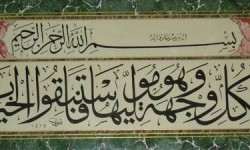 بسم الله الرحمن الرحيم
ولكل وجهة هو موليها فاستبقوا الخيرات